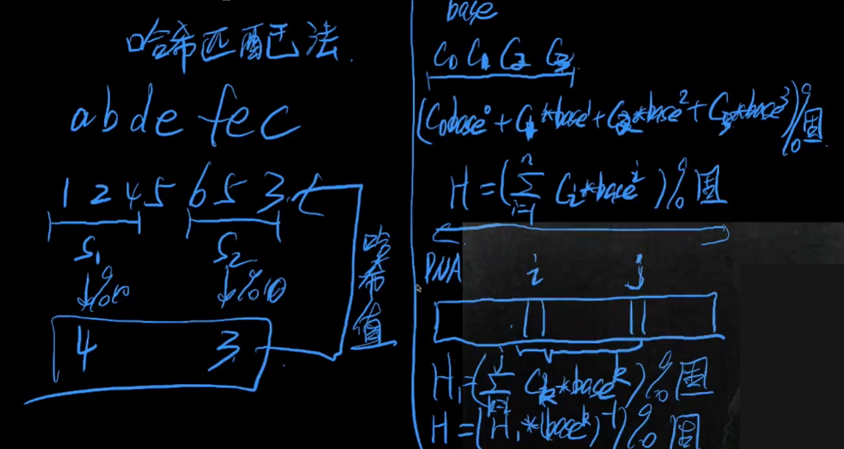 哈希匹配算法
abde fec
1 2 4 5 6 5 3
S₁ S₂
↓%10 ↓%10
4 3
哈希值
base
C₀ C₁ C₂ C₃
(C₀base⁰ + C₁*base¹ + C₂*base² + C₃*base³)%固
H = (∑ⁿᵢ₌₁ Cᵢ*baseⁱ)%固
DNA i j
H₁ = (∑ʲ Cₖ*baseᵏ)%固
H = (H₁*(baseᵏ)⁻¹)%固